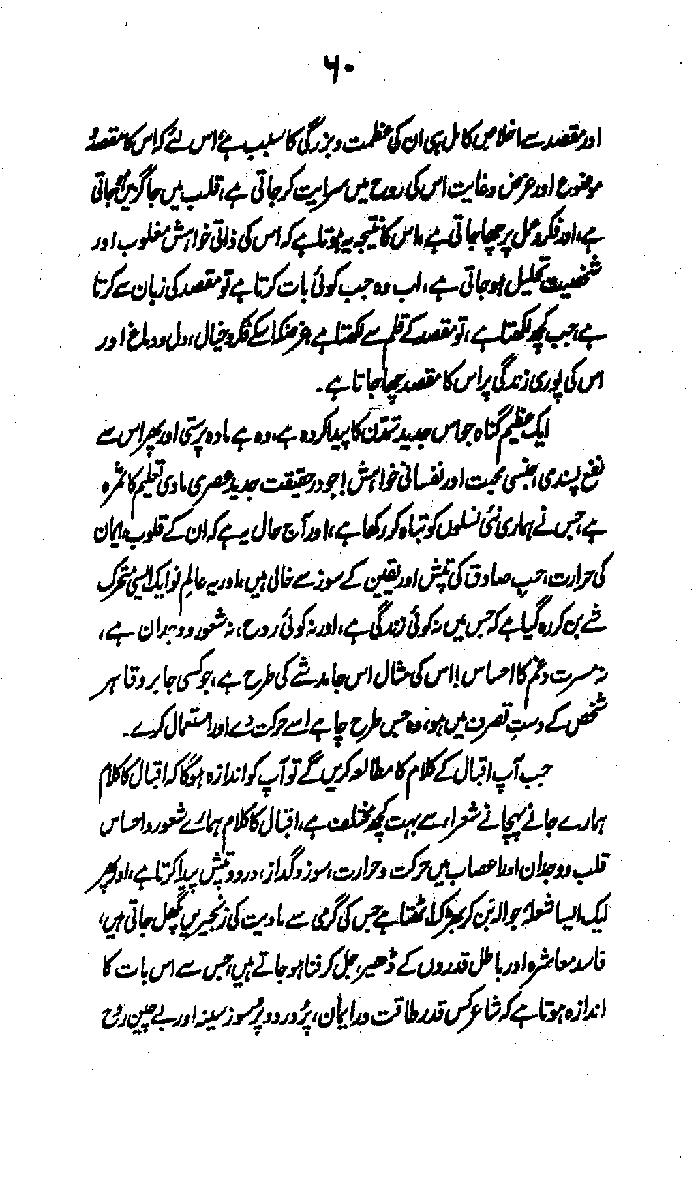 ۶۰
اور مقصد سے اخلاص کامل ہی ان کی عظمت و بزرگی کا سبب ہے اس لئے کہ اس کا مقصد
موضوع اور غرض و غایت اس کی روح میں سرایت کر جاتی ہے، قلب میں جاگزیں ہو جاتی
ہے، اور فکر و عمل پر چھا جاتی ہے، اس کا نتیجہ یہ ہوتا ہے کہ اس کی ذاتی خواہش مغلوب اور
شخصیت تحلیل ہو جاتی ہے، اب وہ جب کوئی بات کرتا ہے تو مقصد کی زبان سے کرتا
ہے، جب کچھ لکھتا ہے، تو مقصد کے قلم سے لکھتا ہے غرضکہ اسکے فکر و خیال، دل و دماغ اور
اس کی پوری زندگی پر اس کا مقصد چھا جاتا ہے۔
ایک عظیم گناہ جو اس جدید تمدن کا پیدا کردہ ہے، وہ ہے مادہ پرستی اور پھر اس سے
نفع پسندی، جنسی محبت اور نفسانی خواہش! جو در حقیقت جدید عصری مادی تعلیم کا ثمرہ
ہے، جس نے ہماری نئی نسلوں کو تباہ کر رکھا ہے، اور آج حال یہ ہے کہ ان کے قلوب، ایمان
کی حرارت، حب صادق کی تپش اور یقین کے سوز سے خالی ہیں، اور یہ عالم نو ایک ایسی متحرک
شے بن کر رہ گیا ہے کہ جس میں نہ کوئی زندگی ہے، اور نہ کوئی روح، نہ شعور و وجدان ہے،
نہ مسرت و غم کا احساس! اس کی مثال اس جامد شے کی طرح ہے، جو کسی جابر و قاہر
شخص کے دست تصرف میں ہو، وہ جس طرح چاہے اسے حرکت دے اور استعمال کرے۔
جب آپ اقبال کے کلام کا مطالعہ کریں گے تو آپ کو اندازہ ہوگا کہ اقبال کا کلام
ہمارے جانے پہچانے شعراء سے بہت کچھ مختلف ہے، اقبال کا کلام ہمارے شعور و احساس
قلب و وجدان اور اعصاب میں حرکت و حرارت، سوز و گداز، درد و تپش پیدا کرتا ہے، اور پھر
ایک ایسا شعلۂ جوالہ بن کر بھڑک اٹھتا ہے جس کی گرمی سے مادیت کی زنجیریں پگھل جاتی ہیں،
فاسد معاشرہ اور باطل قدروں کے ڈھیر، جل کر فنا ہو جاتے ہیں، جس سے اس بات کا
اندازہ ہوتا ہے کہ شاعر کس قدر طاقت ور ایمان، پر درد و پر سوز سینہ اور بے چین روح